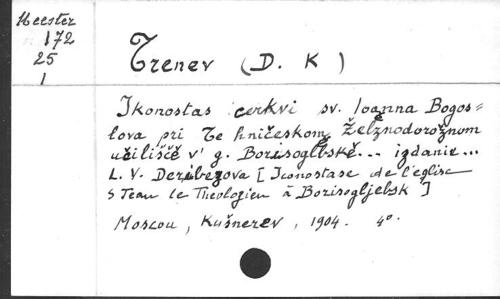 Meester
172
25
1
Trenev (D. K)
Ikonostas cerkvi sv. Ioanna Bogos-
lova pri Te hničeskom Želěznodorožnom
učiliščě v' g. Borisoglěbskě... izdanie...
L. V. Deribezova [Iconostase de l'église
S Jean le Theologien à Borisogljebsk]
Moscou, Kušnerev, 1904. 4°.